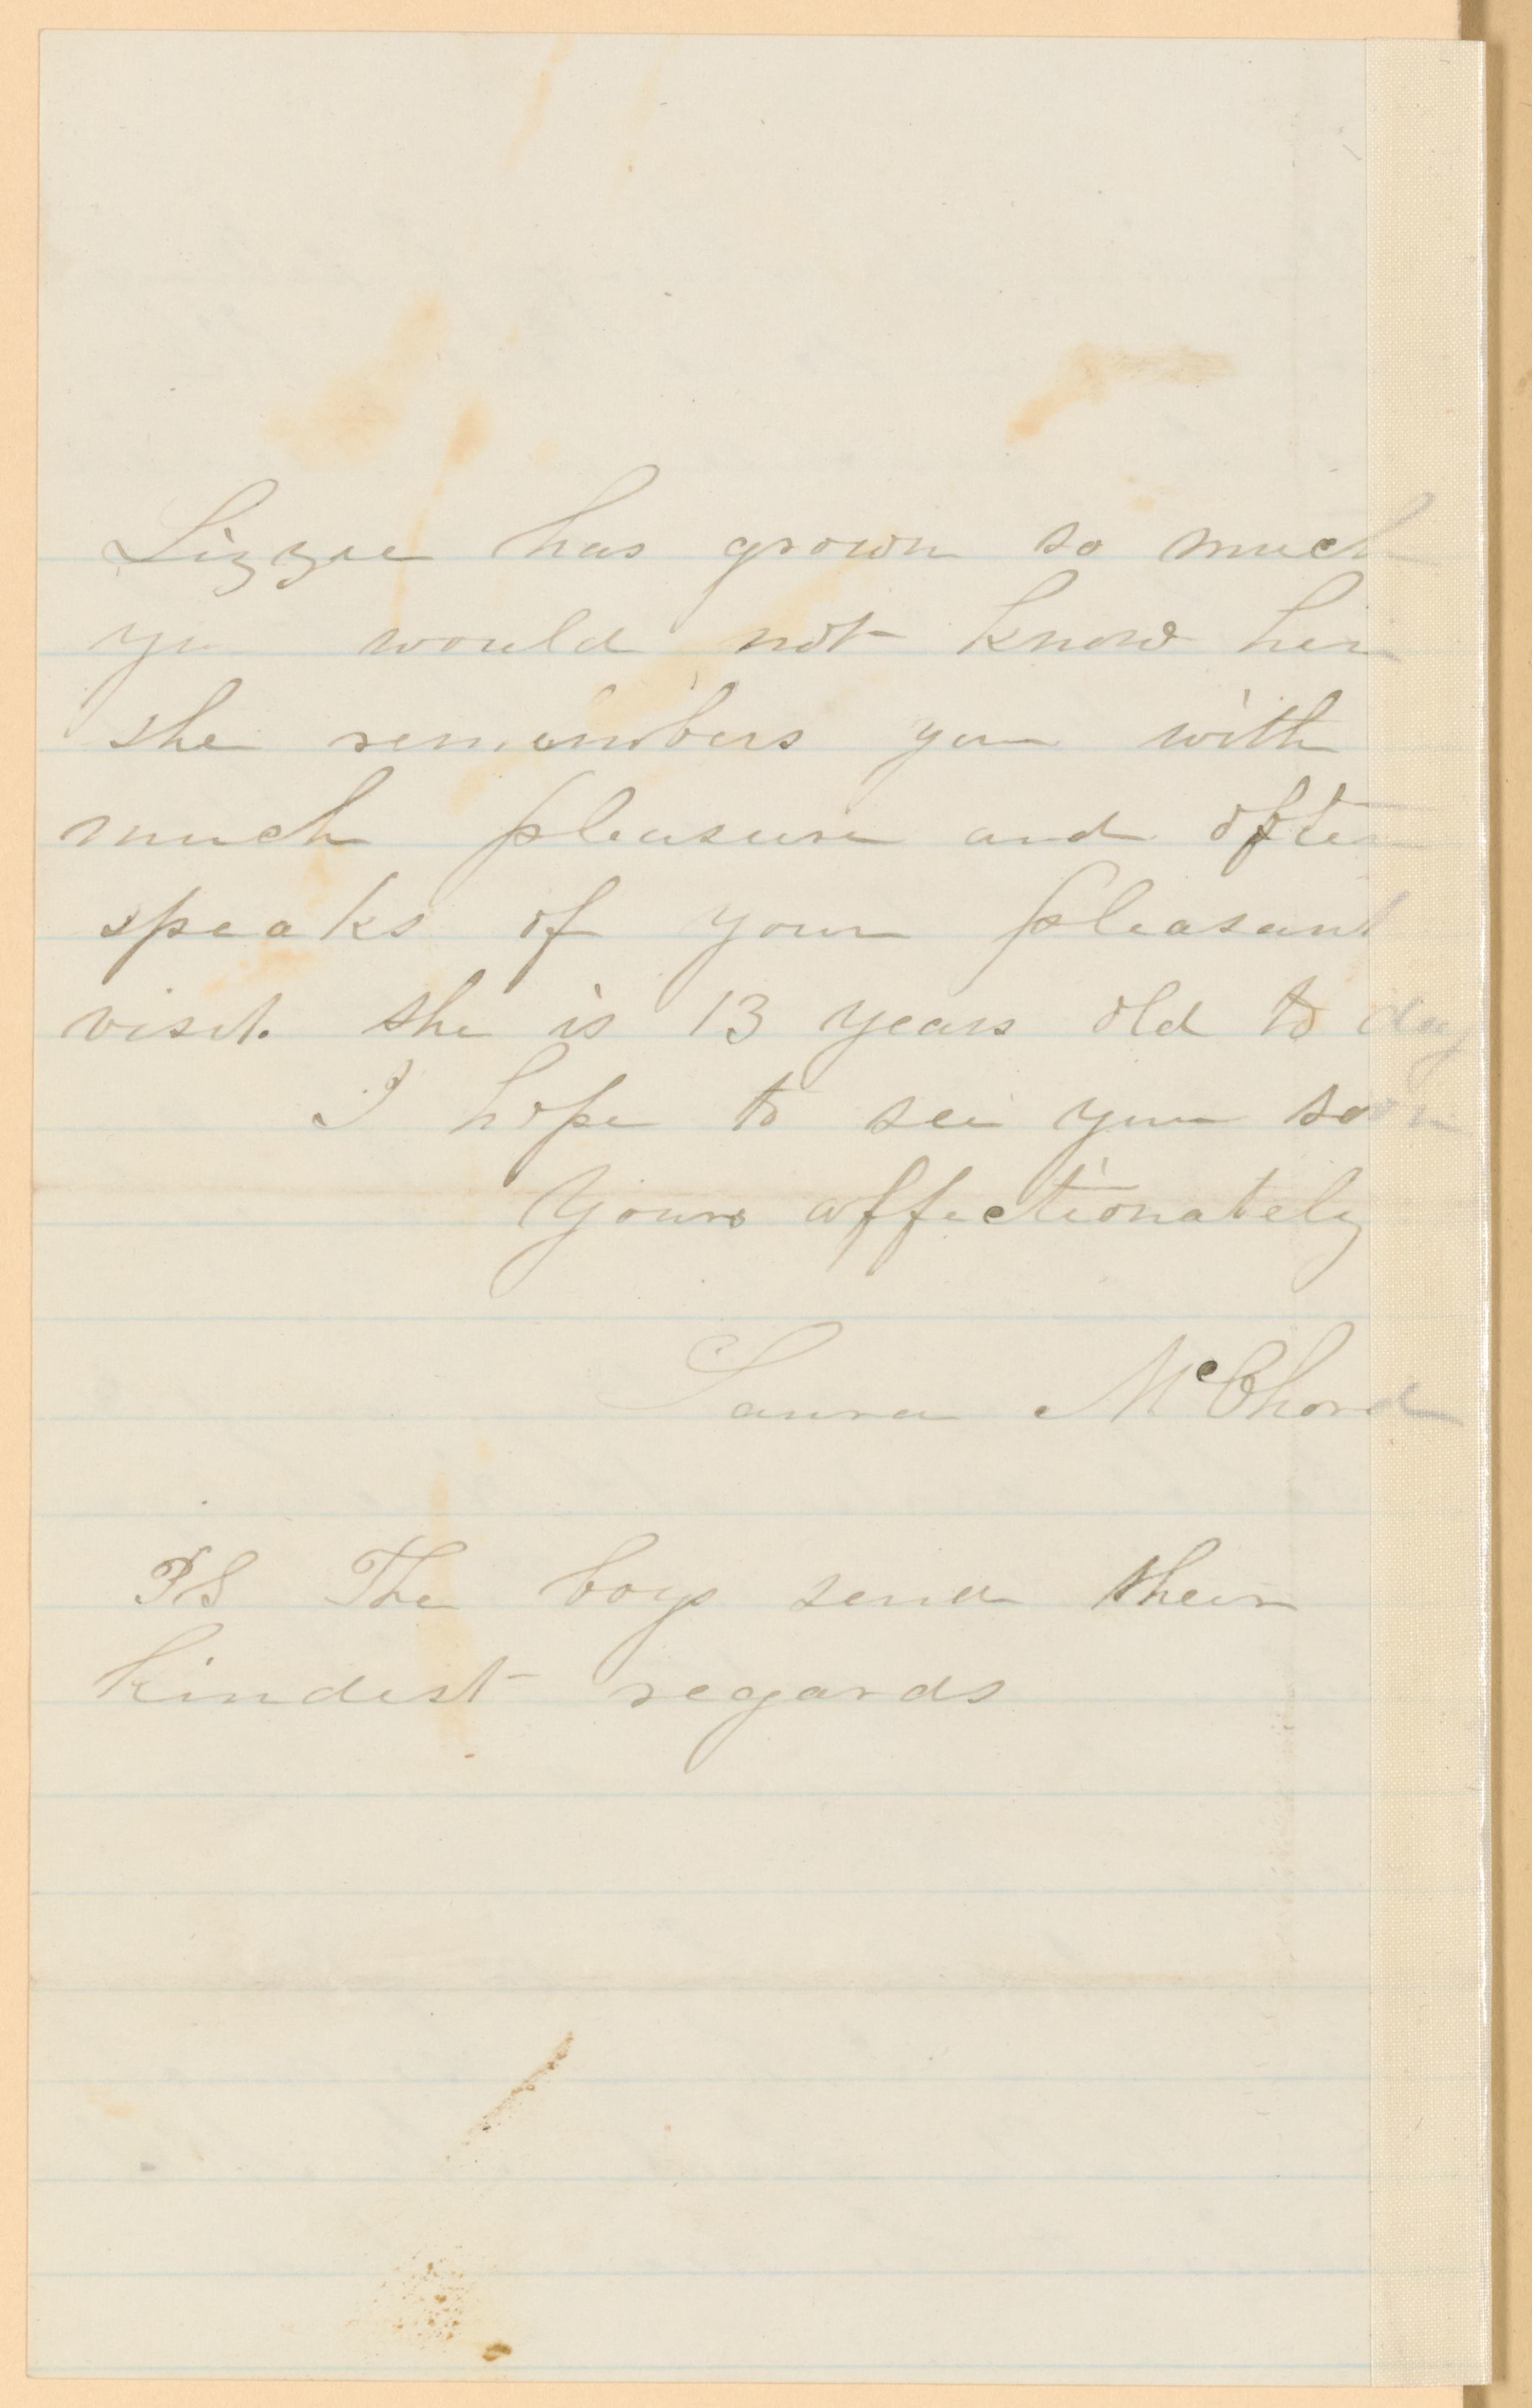 Lizzie has grown so much
you would not know her
she remembers you with
much pleasure and often
speaks of your pleasant
visit. she is 13 years old to day
I hope to see you soon
Yours affectionately
Laura McChord
PS The boys send their
kindest regards